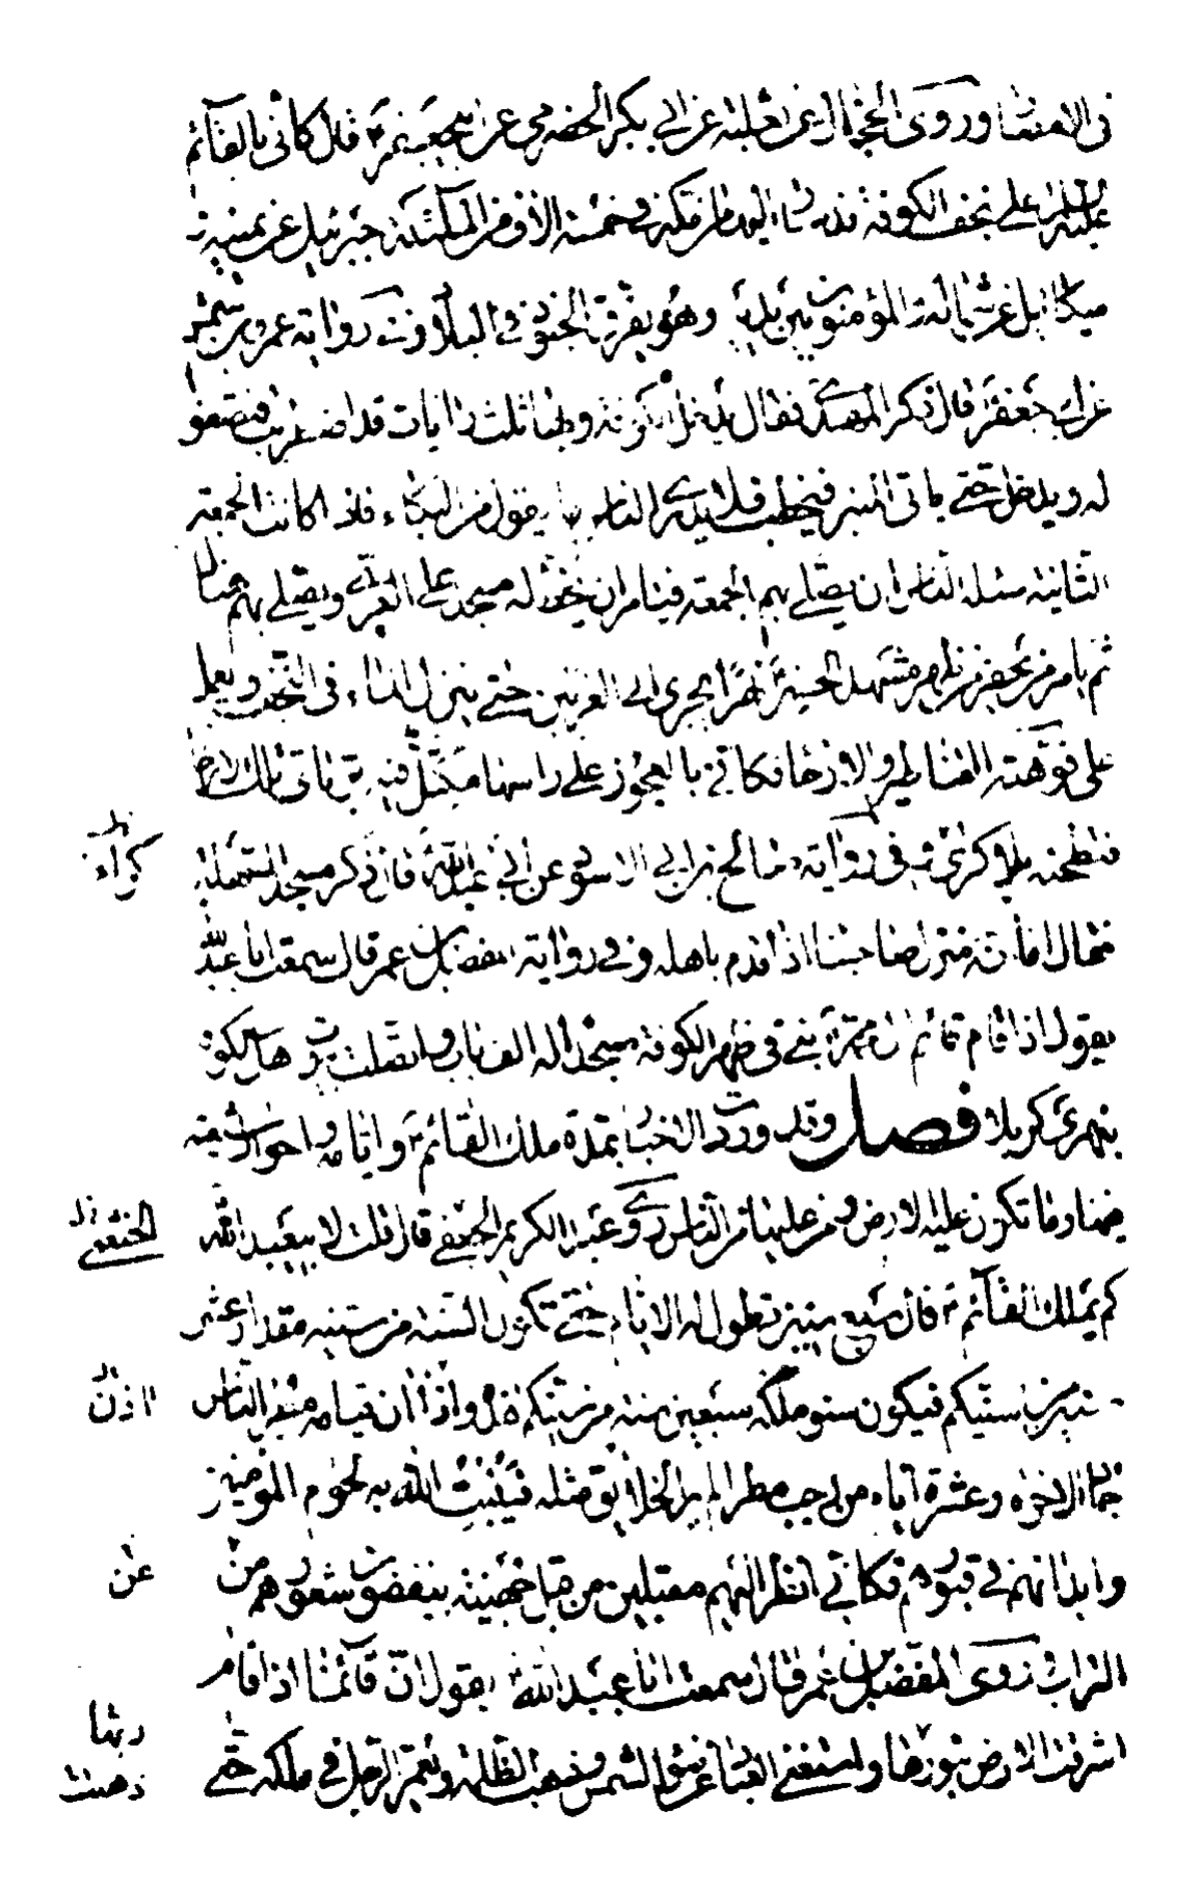 في الامصار وروى الحجال عن ثعلبة عن ابي بكر الحضرمي عن ابي جعفر ع قال كاني بالقآئم
عليه السلم على نجف الكوفة قد سار اليها من مكة في خمسة الاف من الملئكة جبرئيل عن يمينه و
ميكائيل عن شماله والمؤمنون بين يديه وهو يفرق الجنود في البلاد وفي رواية عمرو بن شمر
عن ابي جعفر ع قال ذكر المهدي فقال يدخل الكوفة وبها ثلث رايات قد اضطربت فتصفو
له ويدخل حتى ياتي المنبر فيخطب فلا يدري الناس ما يقول من البكاء فاذا كانت الجمعة
الثانية سئله الناس ان يصلي بهم الجمعة فيامر ان يخط له مسجد على الغري ويصلي بهم هناك
ثم يامر من يحفر من ظهر مشهد الحسين ع نهرا يجري الى الغريين حتى ينزل الماء في النجف ويعمل
على فوهته القناطير والارحاء فكاني بالعجوز على راسها مكتل فيه بر تاتي تلك الارحا
فتطحنه بلا كرى وفي رواية صالح بن ابي الاسود عن ابي عبد الله ع قال ذكر مسجد السهلة
كراء خ ل
فقال اما انه منزل صاحبنا اذا قدم باهله وفي رواية المفضل بن عمر قال سمعت ابا عبد الله
يقول اذا قام قائم ال محمد ع بنى في ظهر الكوفة مسجدا له الف باب واتصلت بيوت اهل الكوفة
بنهري كربلا فصل وقد وردت الاخبار بمدة ملك القائم ع وايامه واحوال شيعته
فيها وما تكون عليه الارض ومن عليها من الناس روى عبد الكريم الجعفي قال قلت لابي عبد الله
الخثعمي خ ل
كم يملك القآئم ع قال سبع سنين تطول له الايام حتى تكون السنة من سنيه مقدار عشر
سنين من سنيكم فيكون سنو ملكه سبعين سنة من سنيكم هذه واذا ان قيامه مطر الناس
جمادى الاخرة وعشرة ايام من رجب مطرا لم ير الخلايق مثله فينبت الله به لحوم المؤمنين
وابدانهم في قبورهم فكاني انظر اليهم مقبلين من قبل جهينة ينفضون شعورهم من
عن
التراب وروى المفضل بن عمر قال سمعت ابا عبد الله ع يقول ان قآئمنا اذا قام
اشرقت الارض بنورها واستغنى العباد عن ضوء الشمس وذهب الظلمة ويعمر الرجل في ملكه حتى
ربها
ذهبت